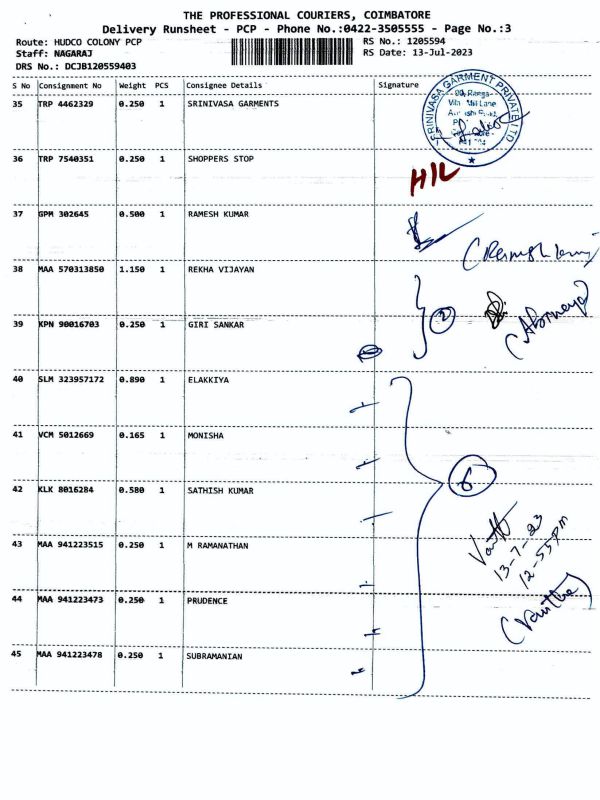 THE PROFESSIONAL COURIERS, COIMBATORE
Delivery Runsheet - PCP - Phone No.:0422-3505555 - Page No.:3
Route: HUDCO COLONY PCP RS No.: 1205594
Staff: NAGARAJ RS Date: 13-Jul-2023
DRS No.: DCJB120559403
S No Consignment No Weight PCS Consignee Details Signature
35 TRP 4462329 0.250 1 SRINIVASA GARMENTS
SRINIVASA GARMENT PRIVATE LTD
36 TRP 7540351 0.250 1 SHOPPERS STOP
37 GPM 302645 0.500 1 RAMESH KUMAR
38 MAA 570313850 1.150 1 REKHA VIJAYAN
2
39 KPN 90016703 0.250 1 GIRI SANKAR
40 SLM 323957172 0.890 1 ELAKKIYA
41 VCM 5012669 0.165 1 MONISHA
6
42 KLK 8016284 0.580 1 SATHISH KUMAR
13-7-23
12-55PM
43 MAA 941223515 0.250 1 M RAMANATHAN
44 MAA 941223473 0.250 1 PRUDENCE
45 MAA 941223478 0.250 1 SUBRAMANIAN